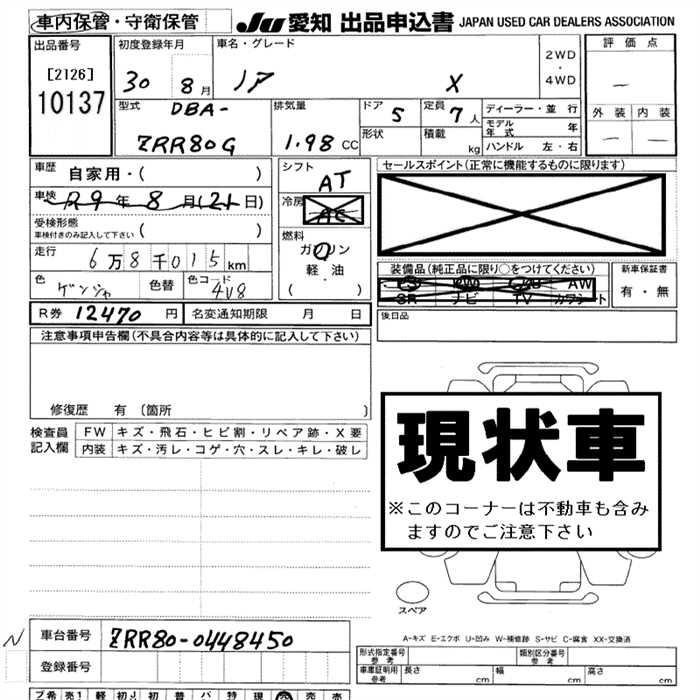 車内保管・守衛保管
JU 愛知 出品申込書 JAPAN USED CAR DEALERS ASSOCIATION
出品番号 初度登録年月 車名・グレード 2WD ・ 4WD 評価点
[2126] 30 8月 ノア X —
10137 外装 内装
型式 DBA- 排気量 ドア 5 定員 7人 ディーラー・並行
ZRR80G 1.98 CC 形状 積載 kg モデル年式 年
ハンドル 左・右 — —
車歴 自家用・( ) シフト AT セールスポイント(正常に機能するものに限ります)
車検 R9年8月(21日) 冷房 AC
受検形態 ( )
車検付きのみ記入して下さい
燃料 ガソリン
軽・油
( )
走行 6万8千015km
装備品(純正品に限り○をつけてください) 新車保証書
PS PW AW 有・無
SR ナビ TV カワシート
色 ゲンジャ 色替 色コード 4V8
後日品
R券 12470円 名変通知期限 月 日
注意事項申告欄(不具合内容等は具体的に記入して下さい)
修復歴 有 〔箇所 〕
検査員記入欄 FW キズ・飛石・ヒビ割・リペア跡・X要
内装 キズ・汚レ・コゲ・穴・スレ・キレ・破レ
現状車
※このコーナーは不動車も含み
ますのでご注意下さい
スペア
A-キズ E-エクボ U-凹み W-補修跡 S-サビ C-腐食 XX-交換済
N 車台番号 ZRR80-0448450
登録番号
形式指定番号 参考 類別区分番号 参考
車庫証明用 参考 長さ cm 幅 cm 高さ cm